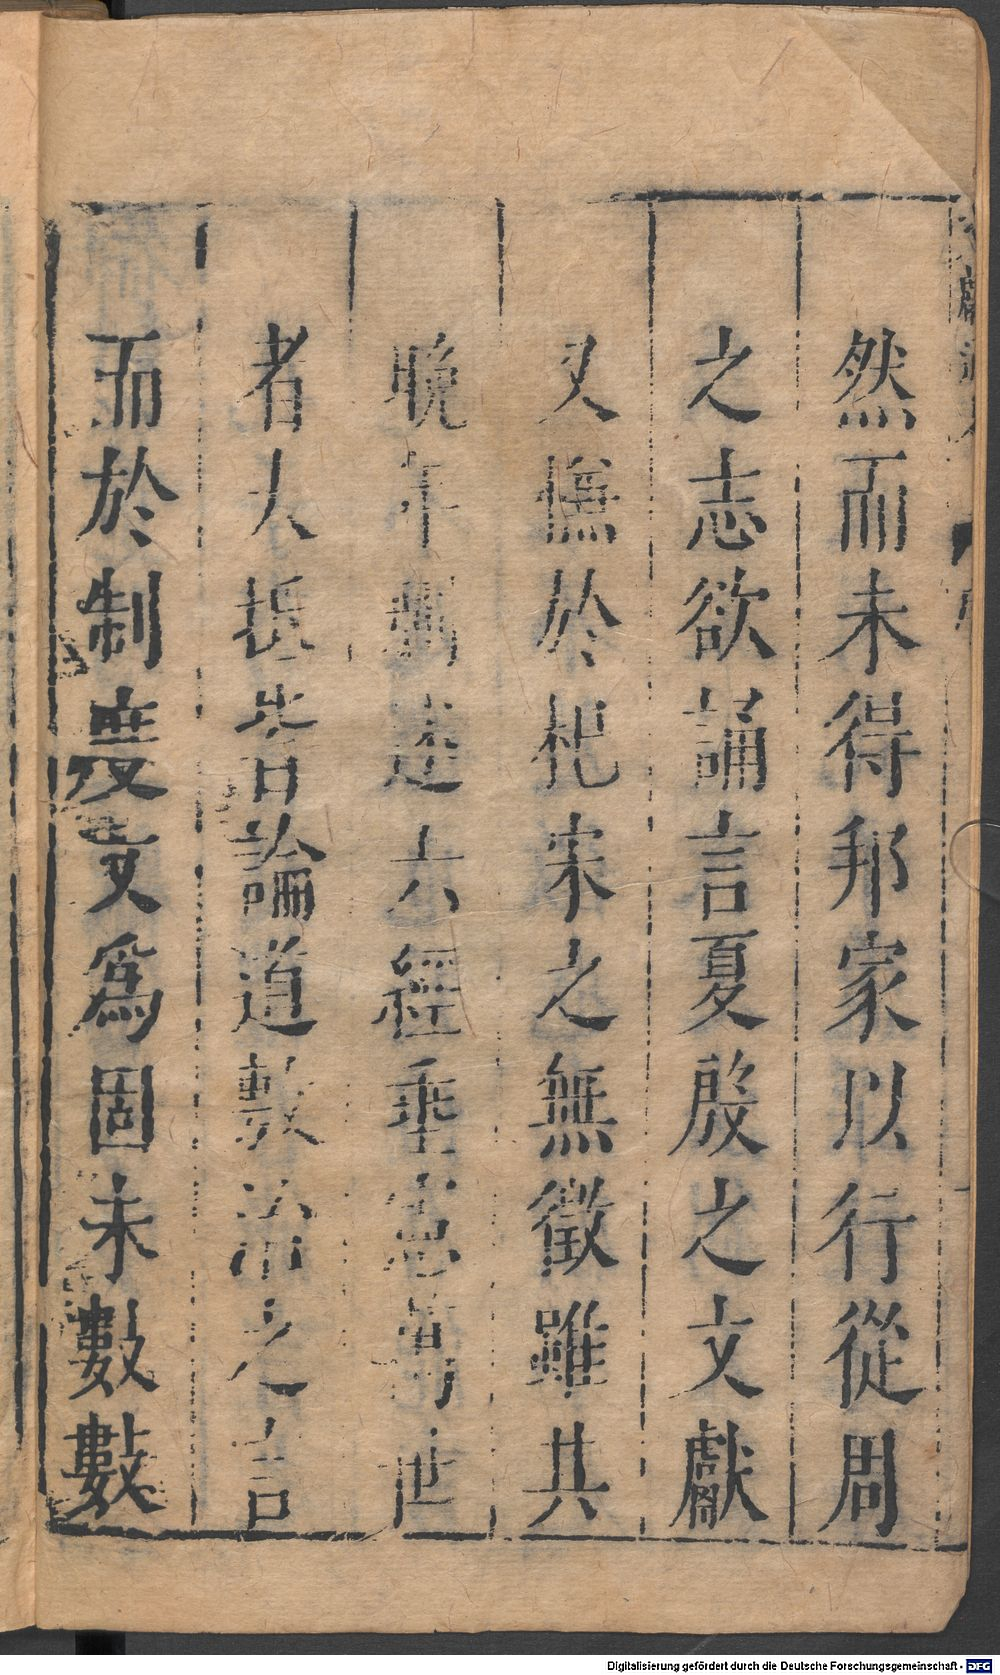 然而未得邦家以行從周
之志欲誦言夏殷之文獻
又憮於杞宋之無徵雖其
晚年刪述六經垂憲萬世
者大抵皆論道敷治之言
而於制度文爲固未數數
Digitalisierung gefördert durch die Deutsche Forschungsgemeinschaft - DFG